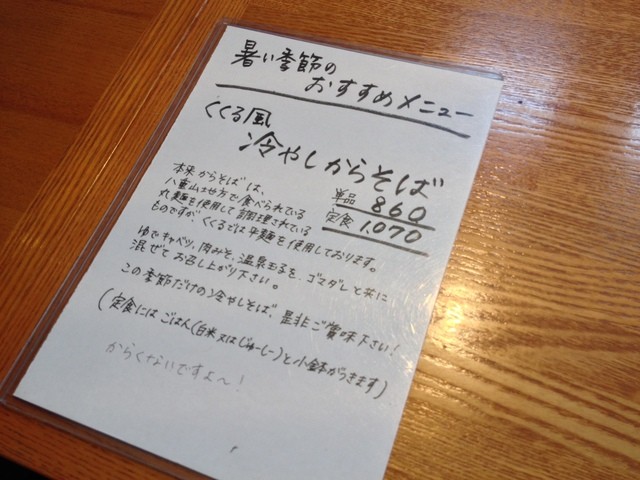 暑い季節の
おすすめメニュー
くくる風
冷やしからそば
単品 860
定食 1,070
本来からそばは、
八重山地方で食べられている
丸麺を使用して調理されている
ものですが、くくるでは平麺を使用しております。
ゆでキャベツ、肉みそ、温泉玉子を、ゴマダレと共に
混ぜてお召し上がり下さい。
この季節だけの冷やしそば、是非ご賞味下さい!
(定食にはごはん(白米又はじゅーしー)と小鉢がつきます)
からくないですよ〜!